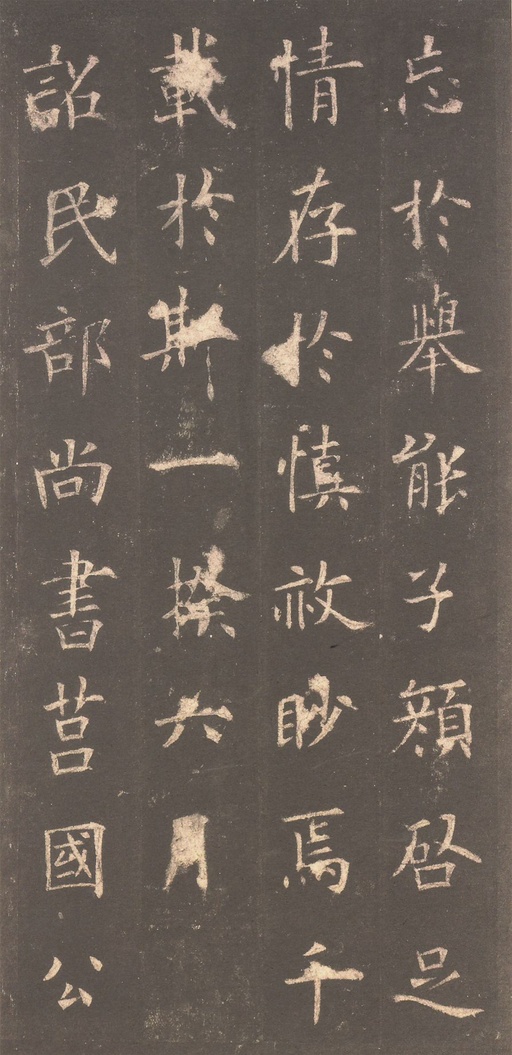 忘於舉能子顏啓足
情存於慎赦眇焉千
載於斯一揆六月
詔民部尚書莒國公